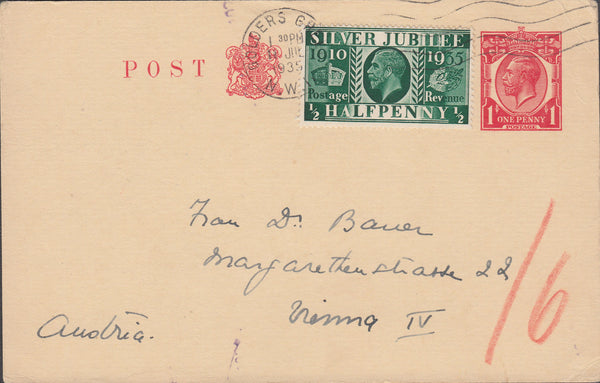 GOLDERS GR
1 30PM
JUL
1935
N.W.
POST
SILVER JUBILEE
1910 1935
Postage Revenue
1/2 HALFPENNY 1/2
1 ONE PENNY 1
POSTAGE
Frau Dr. Bauer
Margarethenstrasse 22
Vienna IV
Austria.
/6